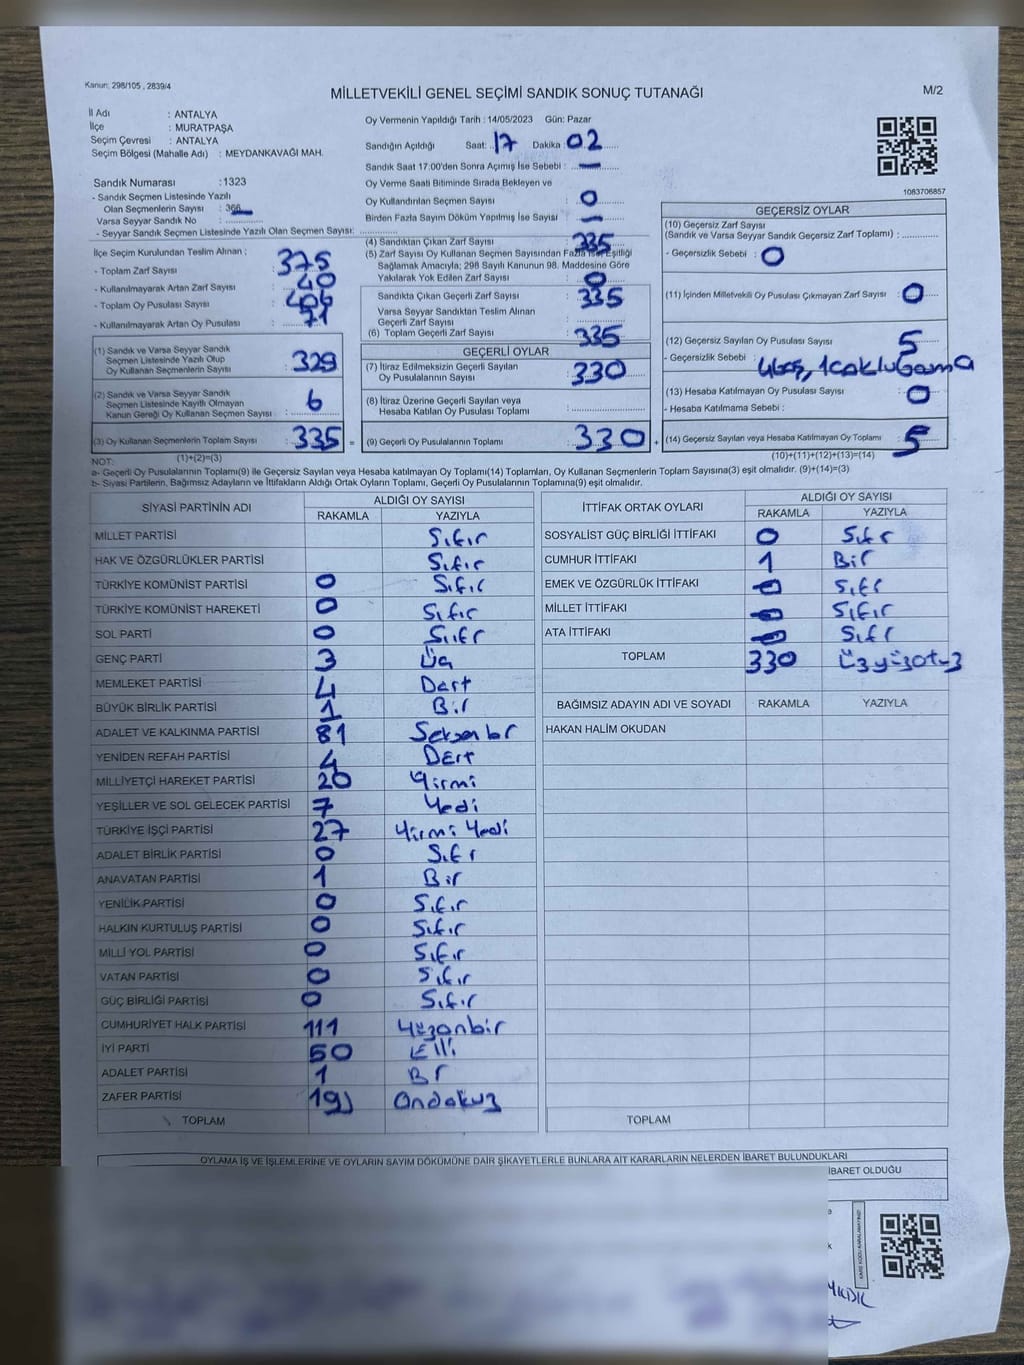 Kanun: 298/105 , 2839/4
MİLLETVEKİLİ GENEL SEÇİMİ SANDIK SONUÇ TUTANAĞI
M/2
İl Adı : ANTALYA
İlçe : MURATPAŞA
Seçim Çevresi : ANTALYA
Seçim Bölgesi (Mahalle Adı) : MEYDANKAVAĞI MAH.
Sandık Numarası :1323
- Sandık Seçmen Listesinde Yazılı
Olan Seçmenlerin Sayısı : 366
Varsa Seyyar Sandık No :
- Seyyar Sandık Seçmen Listesinde Yazılı Olan Seçmen Sayısı:
Oy Vermenin Yapıldığı Tarih : 14/05/2023 Gün: Pazar
Sandığın Açıldığı Saat: 17 Dakika: 02
Sandık Saat 17:00'den Sonra Açımış İse Sebebi : —
Oy Verme Saati Bitiminde Sırada Bekleyen ve
Oy Kullandırılan Seçmen Sayısı : 0
Birden Fazla Sayım Döküm Yapılmış İse Sayısı : —
1083706857
İlçe Seçim Kurulundan Teslim Alınan ;
- Toplam Zarf Sayısı : 375
- Kullanılmayarak Artan Zarf Sayısı : 40
- Toplam Oy Pusulası Sayısı : 406
- Kullanılmayarak Artan Oy Pusulası : 71
(1) Sandık ve Varsa Seyyar Sandık
Seçmen Listesinde Yazılı Olup
Oy Kullanan Seçmenlerin Sayısı : 329
(2) Sandık ve Varsa Seyyar Sandık
Seçmen Listesinde Kayıtlı Olmayan
Kanun Gereği Oy Kullanan Seçmen Sayısı : 6
(3) Oy Kullanan Seçmenlerin Toplam Sayısı : 335 =
(1)+(2)=(3)
(4) Sandıktan Çıkan Zarf Sayısı : 335
(5) Zarf Sayısı Oy Kullanan Seçmen Sayısından Fazla ise, Eşitliği
Sağlamak Amacıyla; 298 Sayılı Kanunun 98. Maddesine Göre
Yakılarak Yok Edilen Zarf Sayısı : 0
Sandıkta Çıkan Geçerli Zarf Sayısı : 335
Varsa Seyyar Sandıktan Teslim Alınan
Geçerli Zarf Sayısı :
(6) Toplam Geçerli Zarf Sayısı : 335
GEÇERLİ OYLAR
(7) İtiraz Edilmeksizin Geçerli Sayılan
Oy Pusulalarının Sayısı : 330
(8) İtiraz Üzerine Geçerli Sayılan veya
Hesaba Katılan Oy Pusulası Toplamı :
(9) Geçerli Oy Pusulalarının Toplamı : 330 +
GEÇERSİZ OYLAR
(10) Geçersiz Zarf Sayısı
(Sandık ve Varsa Seyyar Sandık Geçersiz Zarf Toplamı) :
- Geçersizlik Sebebi : 0
(11) İçinden Milletvekili Oy Pusulası Çıkmayan Zarf Sayısı : 0
(12) Geçersiz Sayılan Oy Pusulası Sayısı : 5
- Geçersizlik Sebebi : 4boş,
(13) Hesaba Katılmayan Oy Pusulası Sayısı : 0
- Hesaba Katılmama Sebebi :
(14) Geçersiz Sayılan veya Hesaba Katılmayan Oy Toplamı : 5
(10)+(11)+(12)+(13)=(14)
NOT:
a- Geçerli Oy Pusulalarının Toplamı(9) ile Geçersiz Sayılan veya Hesaba katılmayan Oy Toplamı(14) Toplamları, Oy Kullanan Seçmenlerin Toplam Sayısına(3) eşit olmalıdır. (9)+(14)=(3)
b- Siyasi Partilerin, Bağımsız Adayların ve İttifakların Aldığı Ortak Oyların Toplamı, Geçerli Oy Pusulalarının Toplamına(9) eşit olmalıdır.
SİYASİ PARTİNİN ADI
ALDIĞI OY SAYISI
RAKAMLA YAZIYLA
MİLLET PARTİSİ Sıfır
HAK VE ÖZGÜRLÜKLER PARTİSİ Sıfır
TÜRKİYE KOMÜNİST PARTİSİ 0 Sıfır
TÜRKİYE KOMÜNİST HAREKETİ 0 Sıfır
SOL PARTİ 0 Sıfr
GENÇ PARTİ 3 Üç
MEMLEKET PARTİSİ 4 Dört
BÜYÜK BİRLİK PARTİSİ 1 Bir
ADALET VE KALKINMA PARTİSİ 81 Seksenbr
YENİDEN REFAH PARTİSİ 4 Dört
MİLLİYETÇİ HAREKET PARTİSİ 20 Yirmi
YEŞİLLER VE SOL GELECEK PARTİSİ 7 Yedi
TÜRKİYE İŞÇİ PARTİSİ 27 Yirmi Yedi
ADALET BİRLİK PARTİSİ 0 Sıfr
ANAVATAN PARTİSİ 1 Bir
YENİLİK PARTİSİ 0 Sıfır
HALKIN KURTULUŞ PARTİSİ 0 Sıfır
MİLLİ YOL PARTİSİ 0 Sıfır
VATAN PARTİSİ 0 Sıfır
GÜÇ BİRLİĞİ PARTİSİ 0 Sıfır
CUMHURİYET HALK PARTİSİ 111 Yüzonbir
İYİ PARTİ 50 Elli
ADALET PARTİSİ 1 Br
ZAFER PARTİSİ 19 Ondokuz
TOPLAM
İTTİFAK ORTAK OYLARI
ALDIĞI OY SAYISI
RAKAMLA YAZIYLA
SOSYALİST GÜÇ BİRLİĞİ İTTİFAKI 0 Sıfr
CUMHUR İTTİFAKI 1 Bir
EMEK VE ÖZGÜRLÜK İTTİFAKI 0 Sıfr
MİLLET İTTİFAKI 0 Sıfır
ATA İTTİFAKI 0 Sıfr
TOPLAM 330 Üçyüzotuz
BAĞIMSIZ ADAYIN ADI VE SOYADI RAKAMLA YAZIYLA
HAKAN HALİM OKUDAN
TOPLAM
OYLAMA İŞ VE İŞLEMLERİNE VE OYLARIN SAYIM DÖKÜMÜNE DAİR ŞİKAYETLERLE BUNLARA AİT KARARLARIN NELERDEN İBARET BULUNDUKLARI
İBARET OLDUĞU